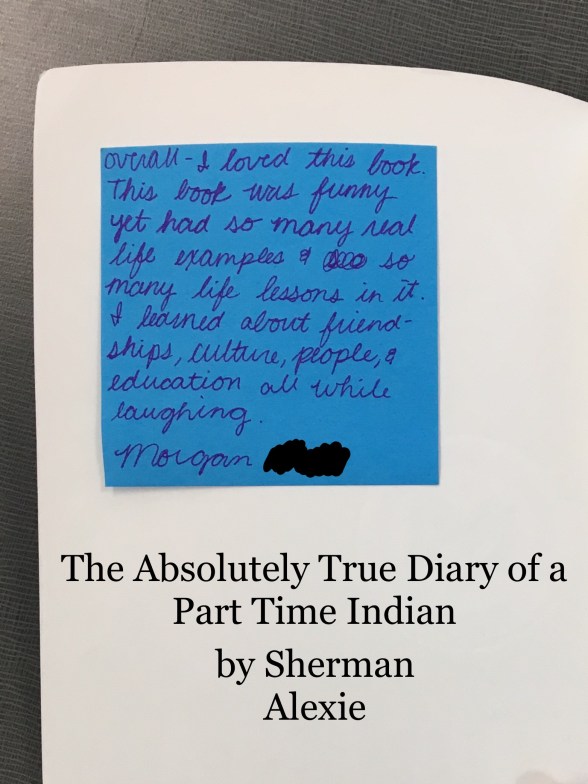 overall - I loved this book.
This book was funny
yet had so many real
life examples & so
many life lessons in it.
I learned about friend-
ships, culture, people, &
education all while
laughing.
Morgan
The Absolutely True Diary of a
Part Time Indian
by Sherman
Alexie